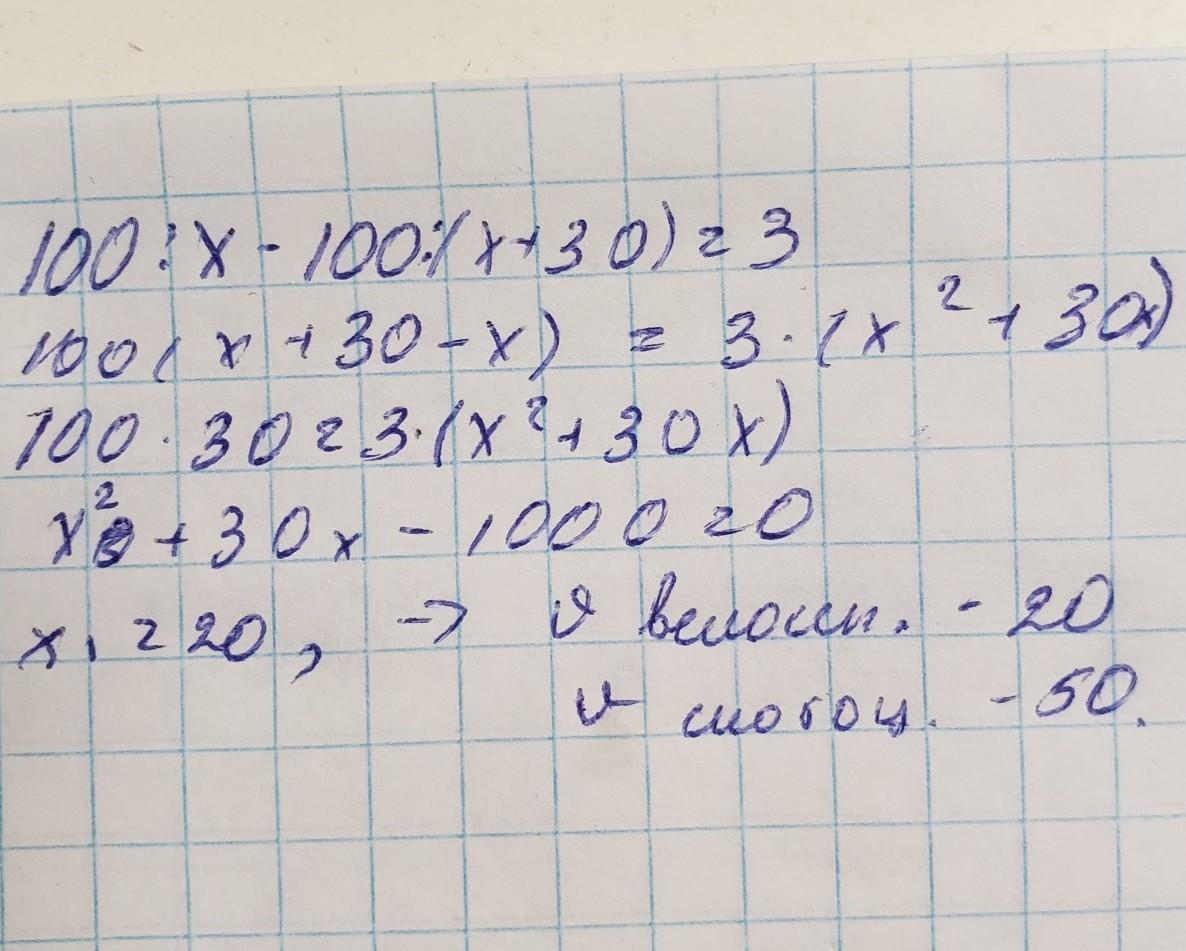 100 : x - 100 : (x + 30) = 3
100 (x + 30 - x) = 3 · (x² + 30x)
100 · 30 = 3 · (x² + 30x)
x² + 30x - 1000 = 0
x₁ = 20, → v велосип. - 20
v мотоц. - 50.